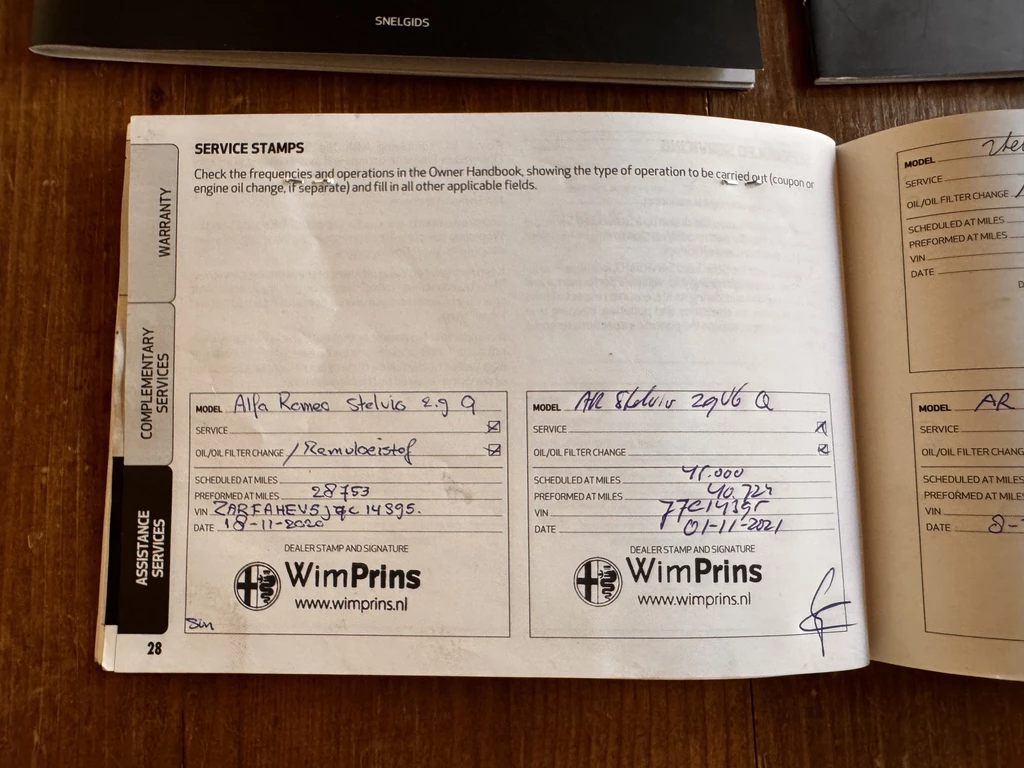 SNELGIDS
SERVICE STAMPS
Check the frequencies and operations in the Owner Handbook, showing the type of operation to be carried out (coupon or
engine oil change, if separate) and fill in all other applicable fields.
WARRANTY
COMPLEMENTARY
SERVICES
ASSISTANCE
SERVICES
MODEL Alfa Romeo Stelvio 2.9 Q
SERVICE
OIL/OIL FILTER CHANGE / Remvloeistof
SCHEDULED AT MILES
PREFORMED AT MILES 28753
VIN ZARFAHEV5J7C14395.
DATE 18-11-2020
DEALER STAMP AND SIGNATURE
WimPrins
www.wimprins.nl
28
MODEL AR Stelvio 29V6 Q
SERVICE
OIL/OIL FILTER CHANGE
SCHEDULED AT MILES 45.000
PREFORMED AT MILES 40.724
VIN 77C14395
DATE 01-11-2021
DEALER STAMP AND SIGNATURE
WimPrins
www.wimprins.nl
MODEL
SERVICE
OIL/OIL FILTER CHANGE
SCHEDULED AT MILES
PREFORMED AT MILES
VIN
DATE
MODEL AR
SERVICE
OIL/OIL FILTER CHANG
SCHEDULED AT MILES
PREFORMED AT MILES
VIN
DATE 8-